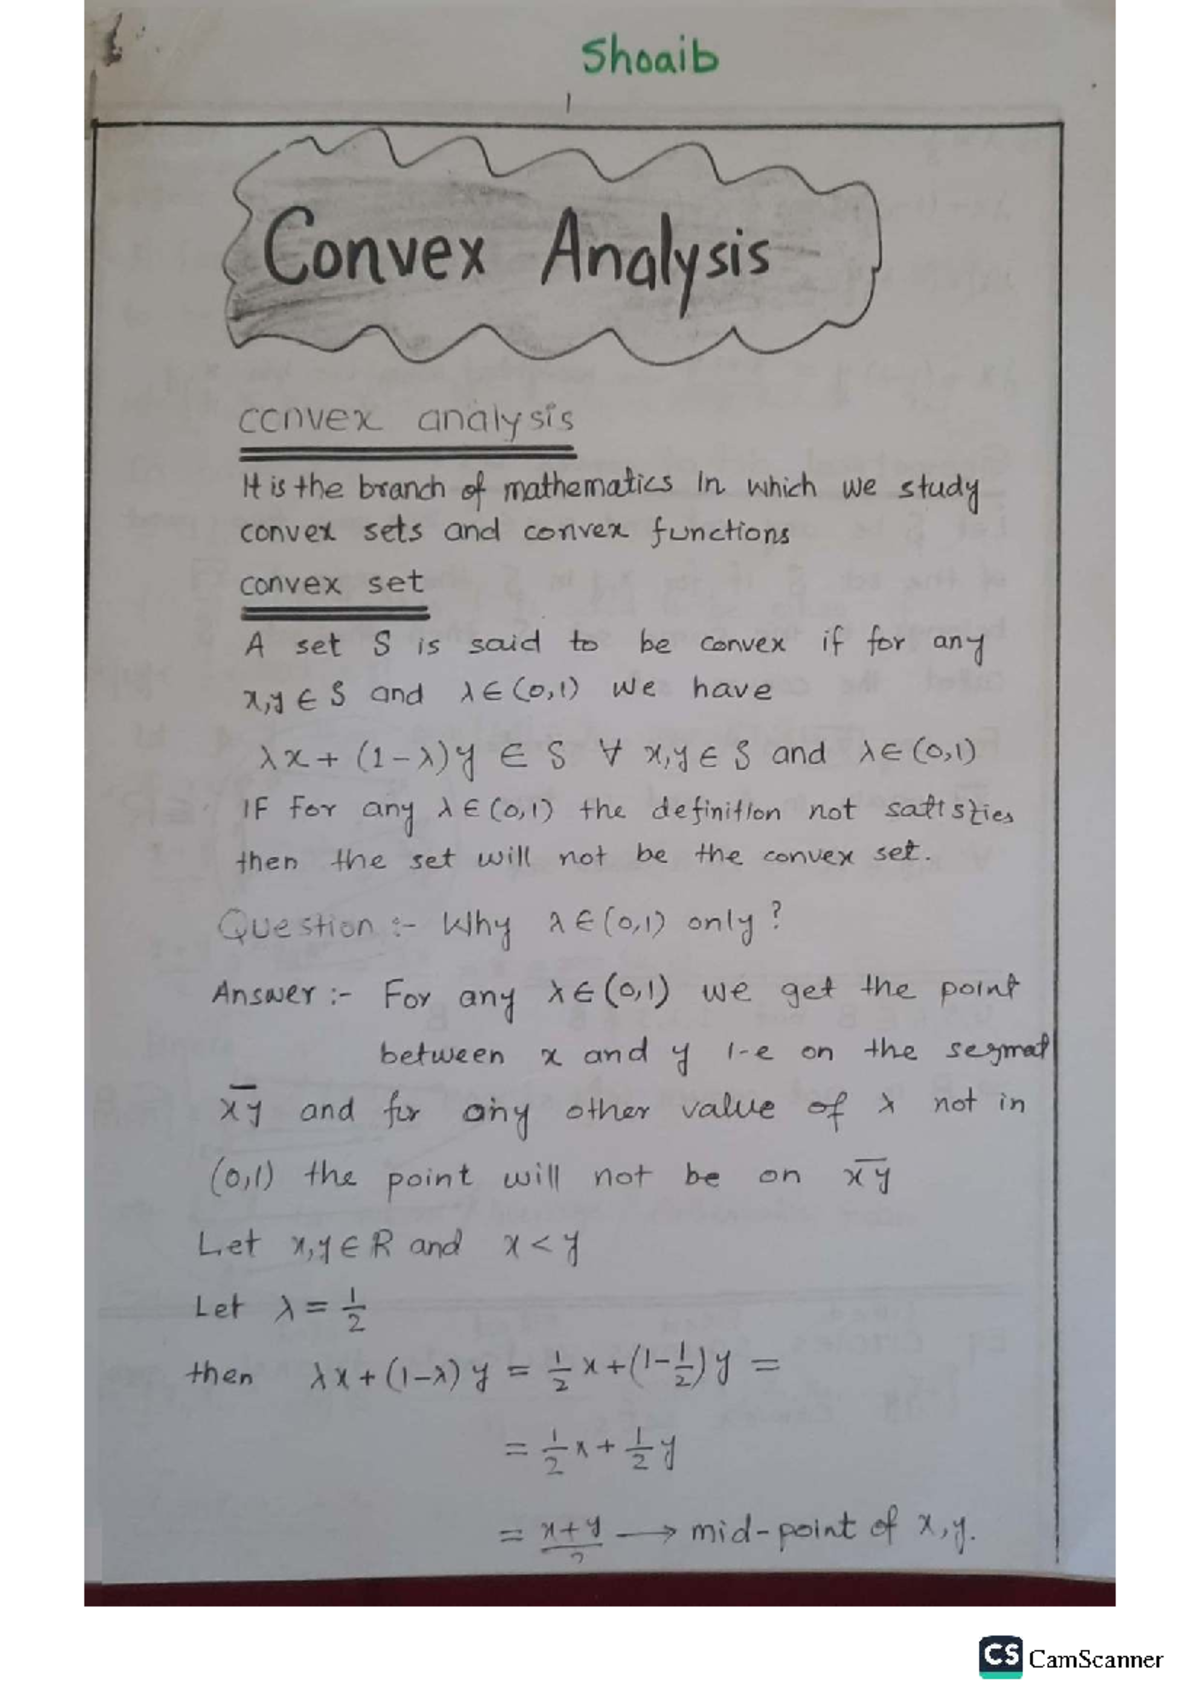 Shoaib
1
Convex Analysis
convex analysis
It is the branch of mathematics in which we study
convex sets and convex functions
convex set
A set S is said to be convex if for any
x,y ∈ S and λ∈(0,1) we have
λx+(1-λ)y ∈ S ∀ x,y∈S and λ∈(0,1)
IF for any λ∈(0,1) the definition not satisties
then the set will not be the convex set.
Question :- Why λ∈(0,1) only?
Answer :- For any λ∈(0,1) we get the point
between x and y i-e on the segmet
x̅y̅ and for any other value of λ not in
(0,1) the point will not be on x̅y̅
Let x,y∈R and x<y
Let λ = 1/2
then λx+(1-λ)y = 1/2 x+(1-1/2)y =
= 1/2 x + 1/2 y
= x+y/2 → mid-point of x,y.
CS CamScanner